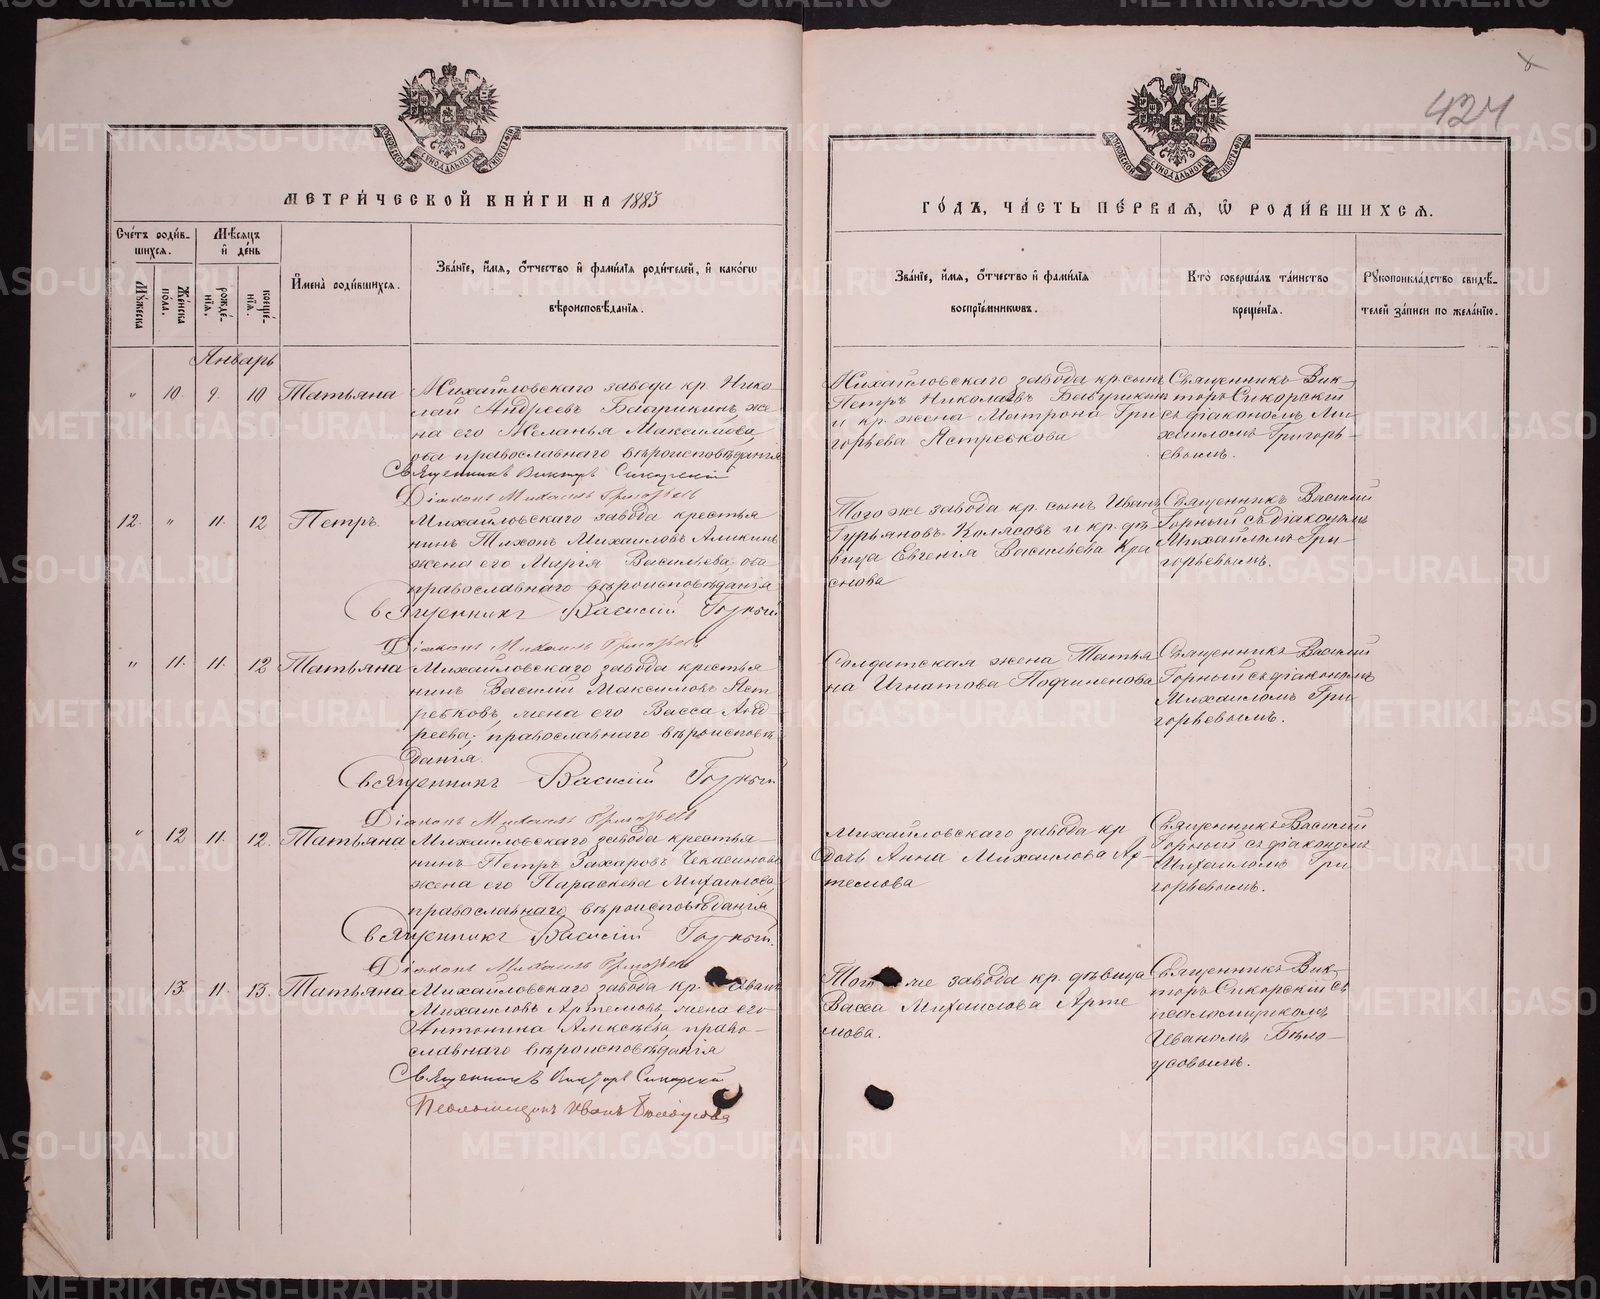 424
МЕТРИ́ЧЕСКОЙ КНИ́ГИ НА 1883
ГО́ДЪ, ЧА́СТЬ ПЕ́РВАЯ, Ѡ РОДИ́ВШИХСЯ.
Сче́тъ роди́в-
шихся.
Му́жеска
Же́нска по́ла.
Мѣ́сяцъ
и҆ де́нь
рожде́-
нїя.
креще́-
нїя.
И҆мена̀ роди́вшихся.
Зва́нїе, и҆́мя, ѻ҆́тчество и҆ фами́лїя роди́телей, и҆ како́гѡ
вѣроисповѣ́данїя.
Зва́нїе, и҆́мя, ѻ҆́тчество и҆ фами́лїя
воспрїе́мникѡвъ.
Кто̀ соверша́лъ та́инство
креще́нїя.
Рꙋкоприкла́дство свидѣ́-
телей за́писи по жела́нїю.
Январь
" 10. 9. 10 Татьяна
Михайловскаго завода кр. Нико-
лай Андреевъ Бабушкинъ, же-
на его Меланья Максимова,
оба православнаго вѣроисповѣданія
Священникъ Викторъ Сикорскій
Діаконъ Михаилъ Григорьевъ
Михайловскаго завода кр. сынъ
Петръ Николаевъ Бабушкинъ
и кр. жена Матрона Гри
горьева Ястребкова
Священникъ Вик-
торъ Сикорскій
съ діакономъ Ми-
хаиломъ Григорь-
евымъ.
12. " 11. 12 Петръ.
Михайловскаго завода крестья
нинъ Тихонъ Михаиловъ Аликинъ
жена его Марія Васильева, оба
православнаго вѣроисповѣданія
Священникъ Василій Горный
Діаконъ Михаилъ Григорьевъ
Того же завода кр. сынъ Иванъ
Гурьяновъ Колясовъ и кр. дѣ
вица Евгенія Васильева Кра
снова
Священникъ Василій
Горный съ діакономъ
Михаиломъ Гри-
горьевымъ.
" 11. 11. 12 Татьяна
Михайловскаго завода крестья
нинъ Василій Максимовъ Яст
ребковъ, жена его Васса Анд
реева, православнаго вѣроисповѣ
данія.
Священникъ Василій Горный
Діаконъ Михаилъ Григорьевъ
Солдатская жена Татья
на Игнатова Подчиненова
Священникъ Василій
Горный съ діакономъ
Михаиломъ Гри-
горьевымъ.
" 12 11. 12. Татьяна
Михайловскаго завода крестья-
нинъ Петръ Захаровъ Чекасиновъ
жена его Параскева Михаилова,
православнаго вѣроисповѣданія
Священникъ Василій Горный.
Діаконъ Михаилъ Григорьевъ
Михайловскаго завода кр
дочь Анна Михаилова Ар-
темова
Священникъ Василій
Горный съ діакономъ
Михаиломъ Гри
горьевымъ.
13. 11. 13. Татьяна
Михайловскаго завода кр. Иванъ
Михаиловъ Артемовъ, жена его
Антонина Алексѣева, право-
славнаго вѣроисповѣданія
Священникъ Викторъ Сикорскій
Псаломщикъ Иванъ Бѣлоусовъ
Того же завода кр. дѣвица
Васса Михаилова Арте
мова.
Священникъ Вик-
торъ Сикорскій съ
псаломщикомъ
Иваномъ Бѣло-
усовымъ.
METRIKI.GASO-URAL.RU